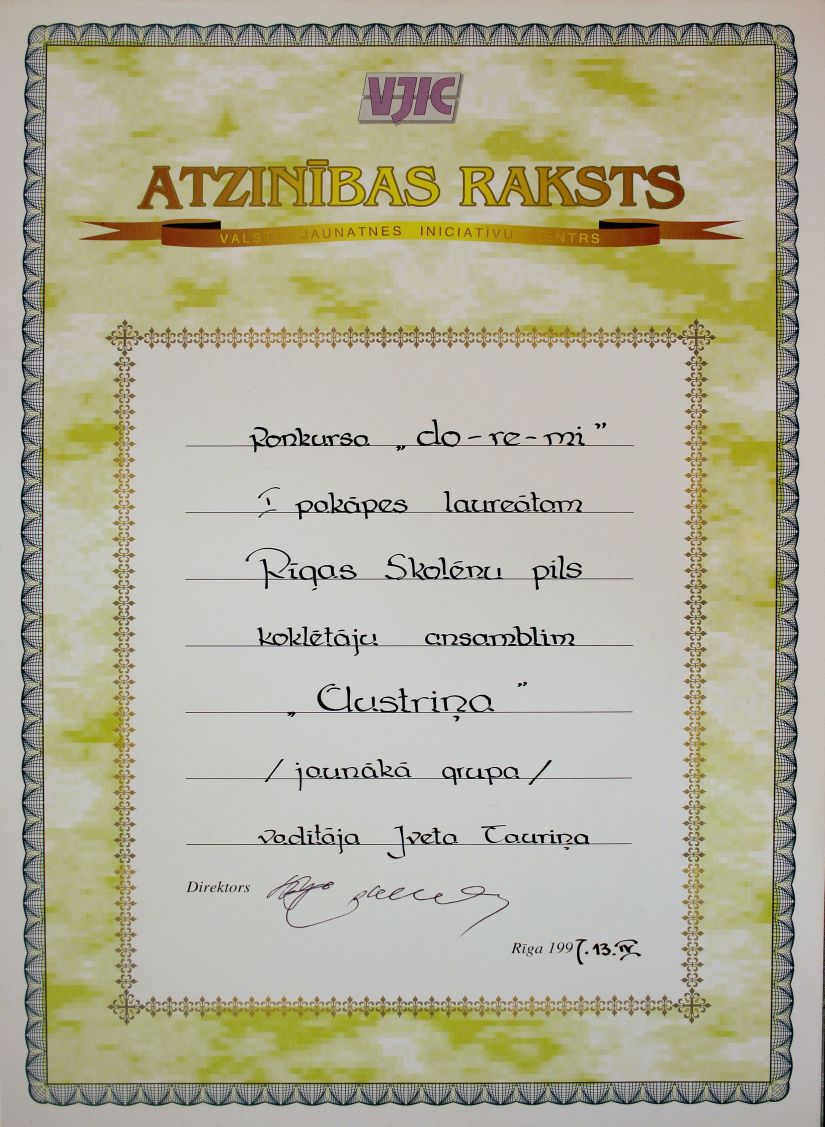 VJIC
ATZINĪBAS RAKSTS
VALSTS JAUNATNES INICIATĪVU CENTRS
konkursa „do-re-mi”
I pakāpes laureātam
Rīgas Skolēnu pils
koklētāju ansamblim
„Austriņa”
/jaunākā grupa/
vadītāja Iveta Tauriņa
Direktors
Rīga 1997.13.IV